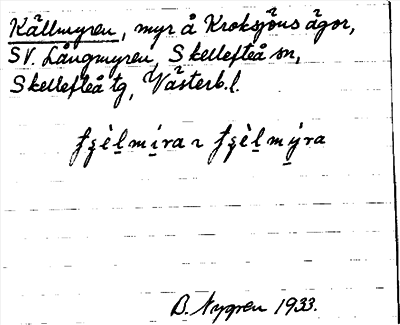 Källmyren, myr å Kroksjöns ägor,
SV. Långmyren, Skellefteå sn,
Skellefteå tg, Västerb. l.
B. Nygren 1933.